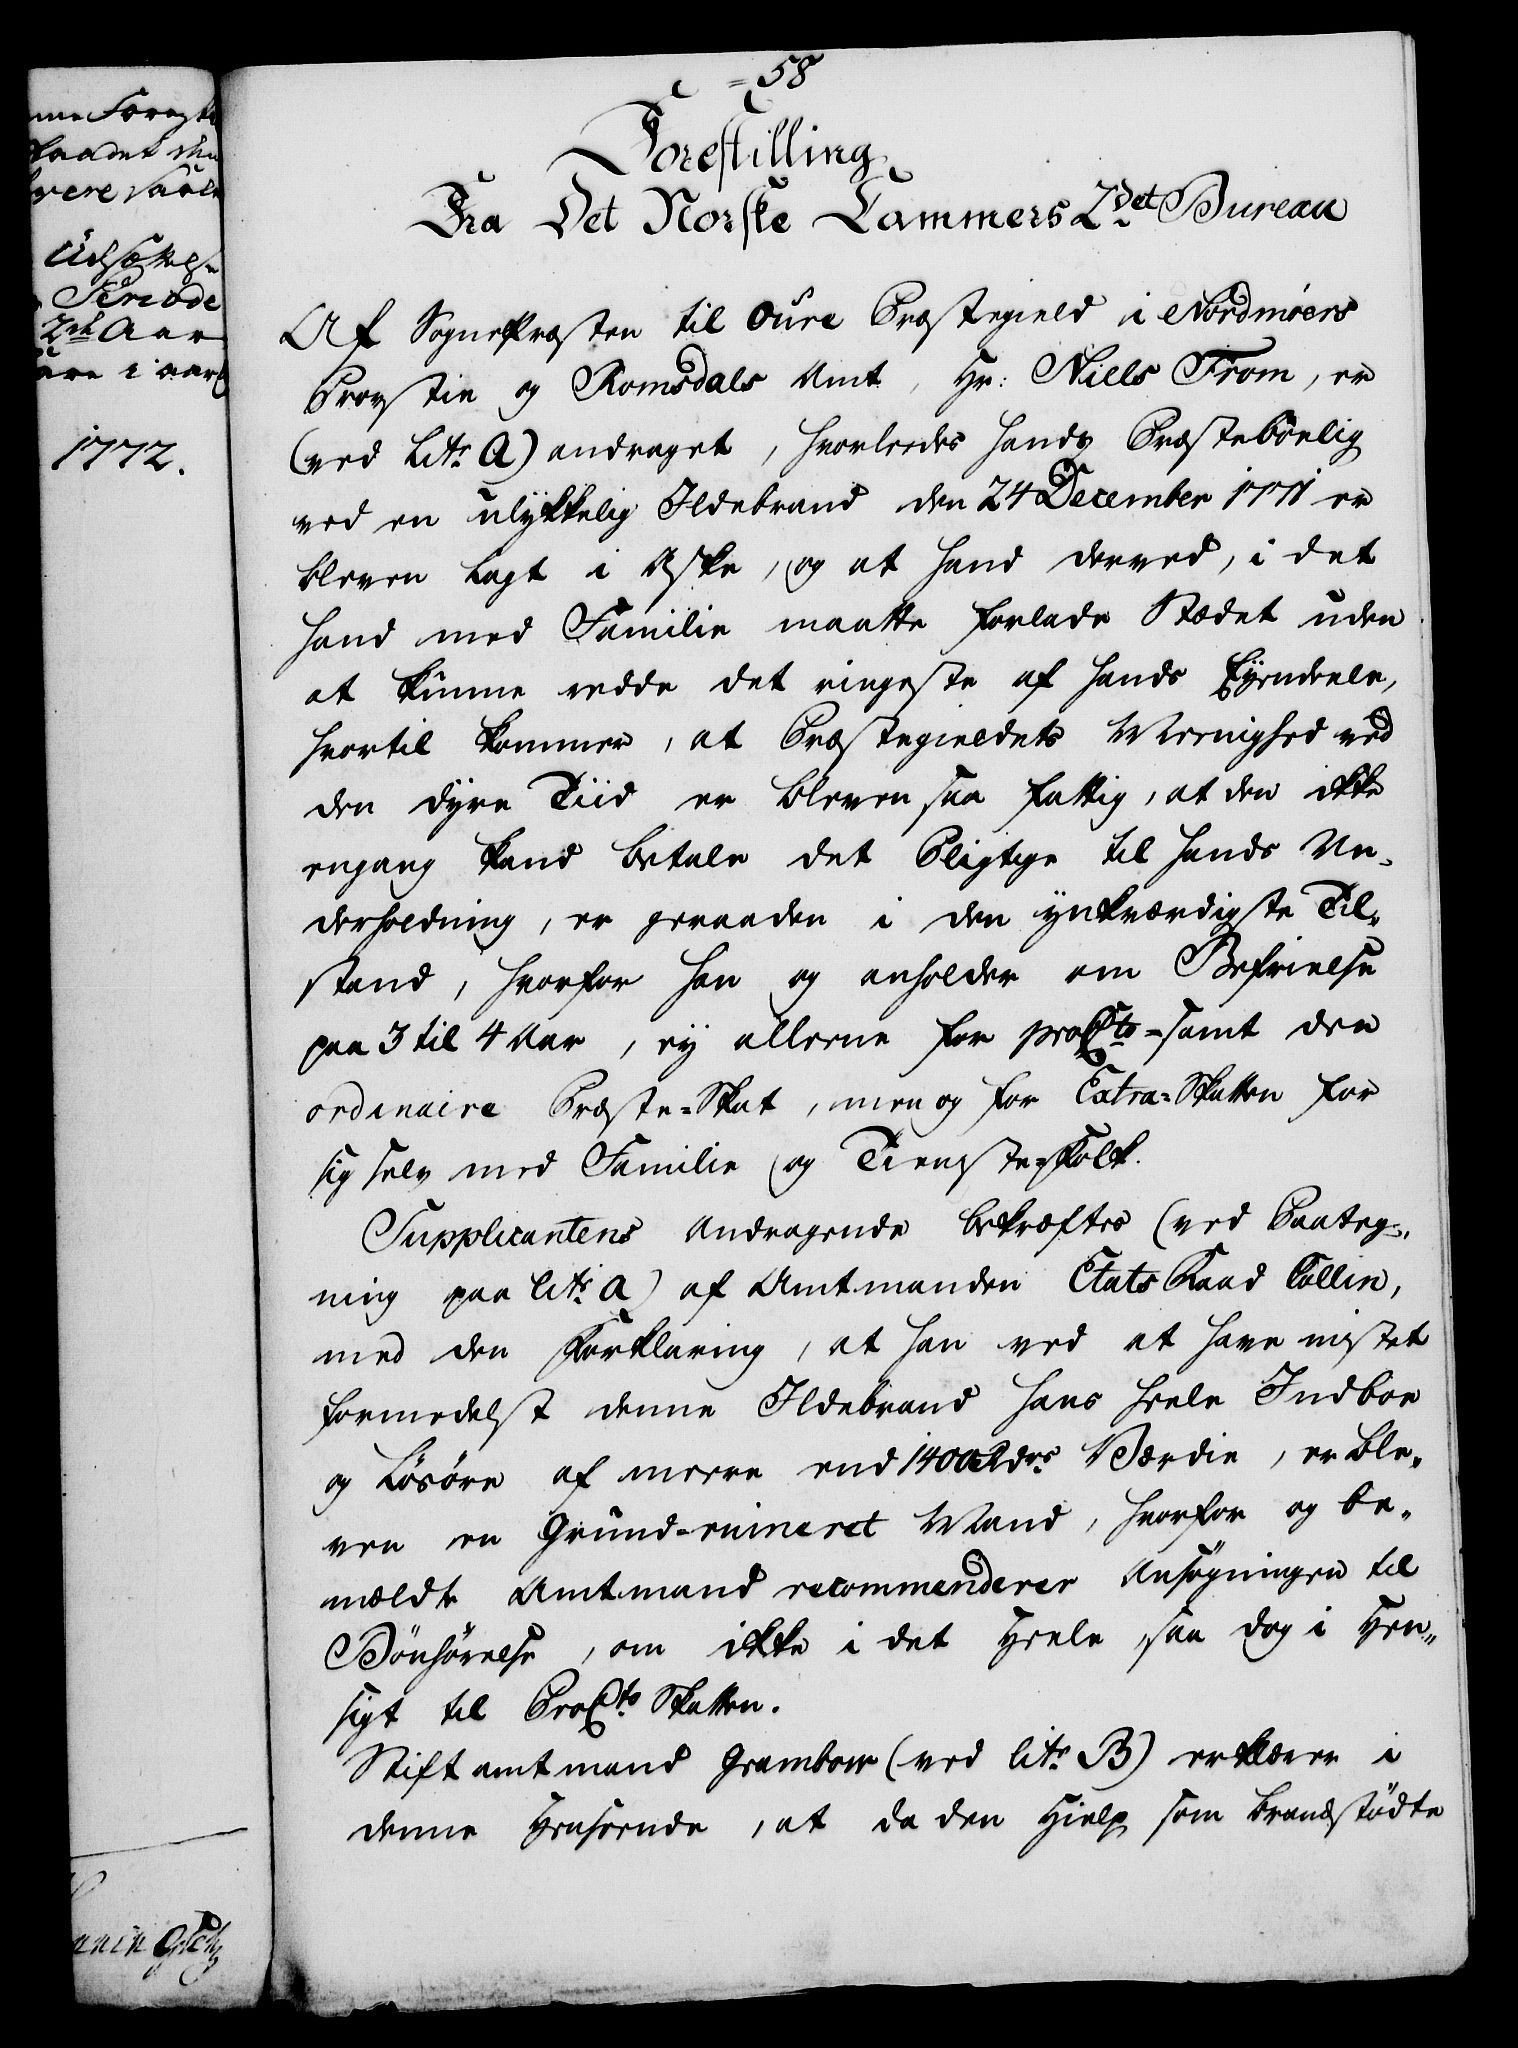 = 58
Forestilling
Fra Det Norske Cammers 2det Bureau
Af Sognepræsten til Oure Præstegield i Nordmøers
Provstie og Romsdals Amt, Hr: Niels From, er
(ved Litr: A) andraget, hvorledes hands Præstebóelig
ved en ulykkelig Ildebrand den 24 December 1771 er
bleven lagt i Aske, og at hand derved, i det
hand med Familie maatte forlade Stædet uden
at kunne redde det ringeste af hands Eyendeele,
hvortil kommer, at Præstegieldets Meenighed ved
den dyre Tiid er bleven saa fattig, at den ikke
engang kand betale det Pligtige til hands Un-
derholdning, er geraaden i den ynkværdigste Til-
stand, hvorfor han og anholder om Befrielse
paa 3 til 4 Aar, ey alleene for proCto = samt den
ordinaire Præste-Skat, men og for Extra-Skatten for
sig selv med Familie og Tieneste-Folk.
Supplicantens Andragende bekræftes (ved Paateg-
ning paa Litr: A) af Amtmanden Etats Raad Collin,
med den Forklaring, at han ved at have mistet
formedelst denne Ildebrand hans heele Indboe
og Løsøre af meere end 1400 Rdrs Værdie, er ble-
ven en Grund-ruineret Mand, hvorfor og be-
mældte Amtmand recommenderer Ansøgningen til
Bönhörelse, om ikke i det Heele, saa dog i Hen-
sigt til ProCto Skatten.
Stiftamtmand Grambow (ved Litr: B) erklærer i
denne Henseende, at da den Hielp som brandstødte
1772.
Periode
2de Aar